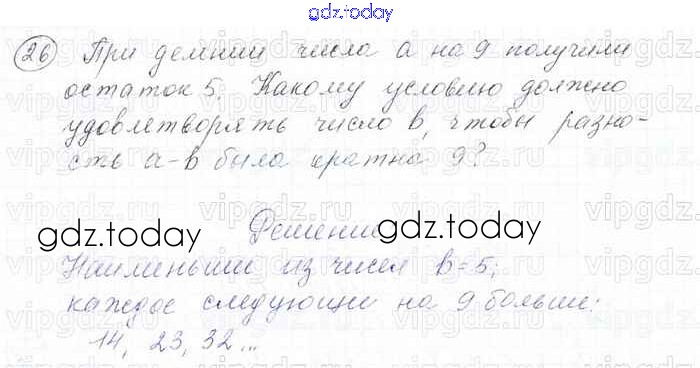 gdz.today
26 При делении числа a на 9 получили
остаток 5. Какому условию должно
удовлетворять число b, чтобы разно-
сть a-b была кратна 9?
Решение
gdz.today gdz.today
Наименьшее из чисел b=5;
каждое следующее на 9 больше:
14, 23, 32...